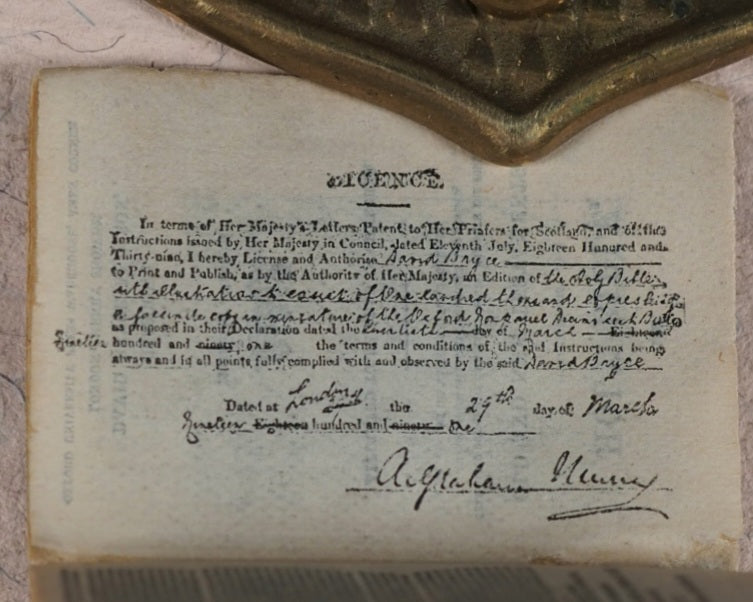 LICENCE.
In terms of Her Majesty's Letters Patent to Her Printers for Scotland, and of the
Instructions issued by Her Majesty in Council, dated Eleventh July, Eighteen Hundred and
Thirty-nine, I hereby License and Authorise David Bryce
to Print and Publish, as by the Authority of Her Majesty, an Edition of the Holy Bible
with illustrations to consist of One hundred thousand copies being
a facsimile copy in miniature of the Oxford Nonpareil Bible
as proposed in their Declaration dated the day of March Eighteen
Nineteen hundred and ninety one the terms and conditions of the said Instructions being
always and in all points fully complied with and observed by the said David Bryce
Dated at London the 29th day of March
Nineteen Eighteen hundred and ninety one
A. Graham Murray